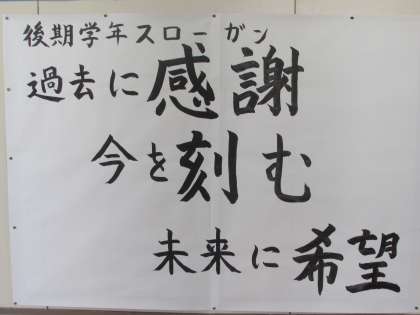 後期学年スローガン
過去に感謝
今を刻む
未来に希望